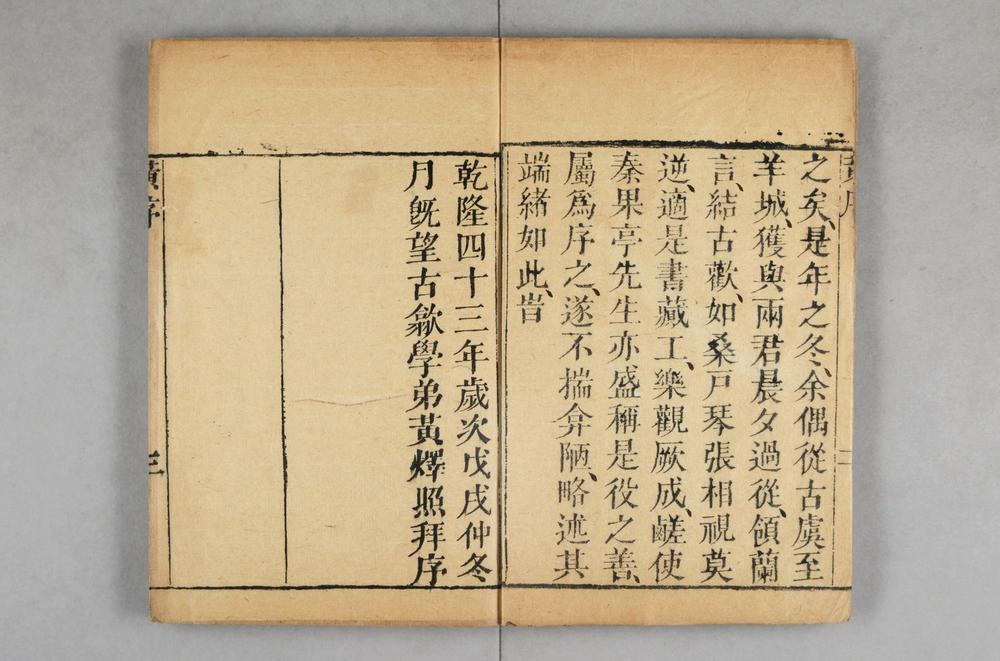 之矣、是年之冬、余偶從古虞至
羊城、獲與兩君晨夕過從、領蘭
言、結古歡、如桑戸琴張相視莫
逆、適是書藏工、樂觀厥成、鹺使
秦果亭先生亦盛稱是役之善、
屬爲序之、遂不揣弇陋、略述其
端緒如此、旹
乾隆四十三年歲次戊戌仲冬
月旣望古歙學弟黃燡照拜序
黃序
三